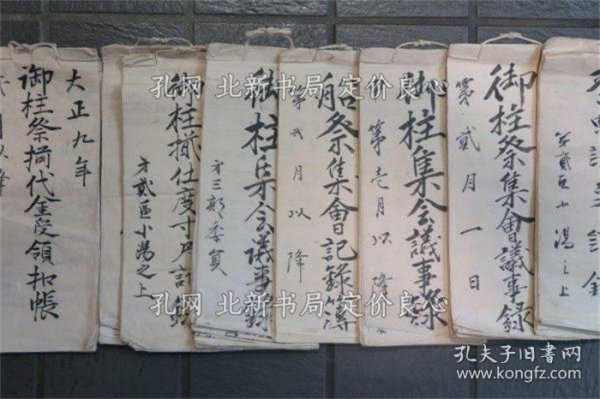 御柱祭集會議事録
第貳月一日
御柱集会議事録
第壱月以降
船祭集會記録簿
第弐月以降
御柱集会議事録
才三部委員
御柱揃仕度寸尺記録
才貳區小湯之上
大正九年
御柱祭揃代金受領扣帳
才貳區小湯之上
孔网 北新书局 定价良心
孔网 北新书局 定价良心
孔夫子旧书网
www.kongfz.com